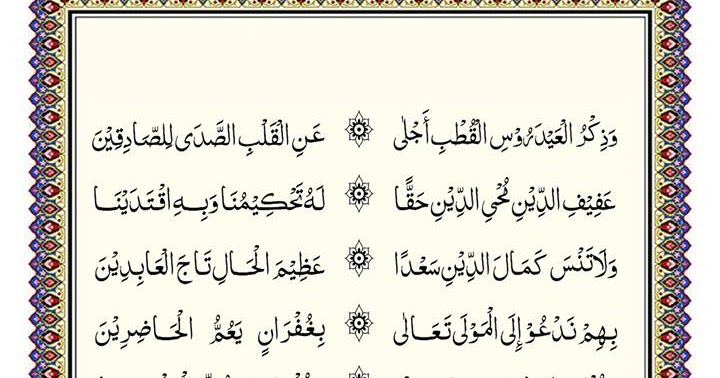 وَذِكْرُ الْعَيْدَرُوْسِ الْقُطْبِ أَجْلٰى ۞ عَنِ الْقَلْبِ الصَّدٰى لِلصَّادِقِيْنَ
عَفِيْفِ الدِّيْنِ مُحْيِ الدِّيْنِ حَقًّا ۞ لَهُ تَحْكِيْمُنَا وَبِهِ اقْتَدَيْنَا
وَلَا تَنْسَ كَمَالَ الدِّيْنِ سَعْدًا ۞ عَظِيْمَ الْحَالِ تَاجَ الْعَابِدِيْنَ
بِهِمْ نَدْعُوْ إِلَى الْمَوْلٰى تَعَالٰى ۞ بِغُفْرَانٍ يَعُمُّ الْحَاضِرِيْنَ